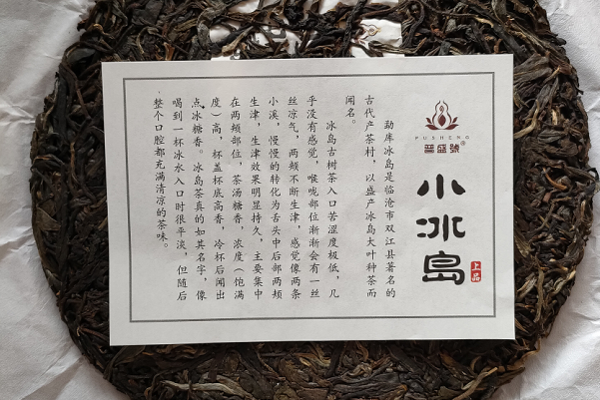 PUSHENG
普盛號®
小冰岛
上品
勐库冰岛是临沧市双江县著名的
古代产茶村，以盛产冰岛大叶种茶而
闻名。
冰岛古树茶入口苦涩度极低，几
乎没有感觉，喉咙部位渐渐会有一丝
丝凉气，两颊不断生津，感觉像两条
小溪，慢慢的转化为舌头中后部两颊
生津，生津效果明显持久，主要集中
在两颊部位，茶汤糖香，浓度（饱满
度）高，杯盖杯底高香，冷杯后闻出
点冰糖香。冰岛茶真的如其名字，像
喝到一杯冰水入口时很平淡，但随后
整个口腔都充满清凉的茶味。